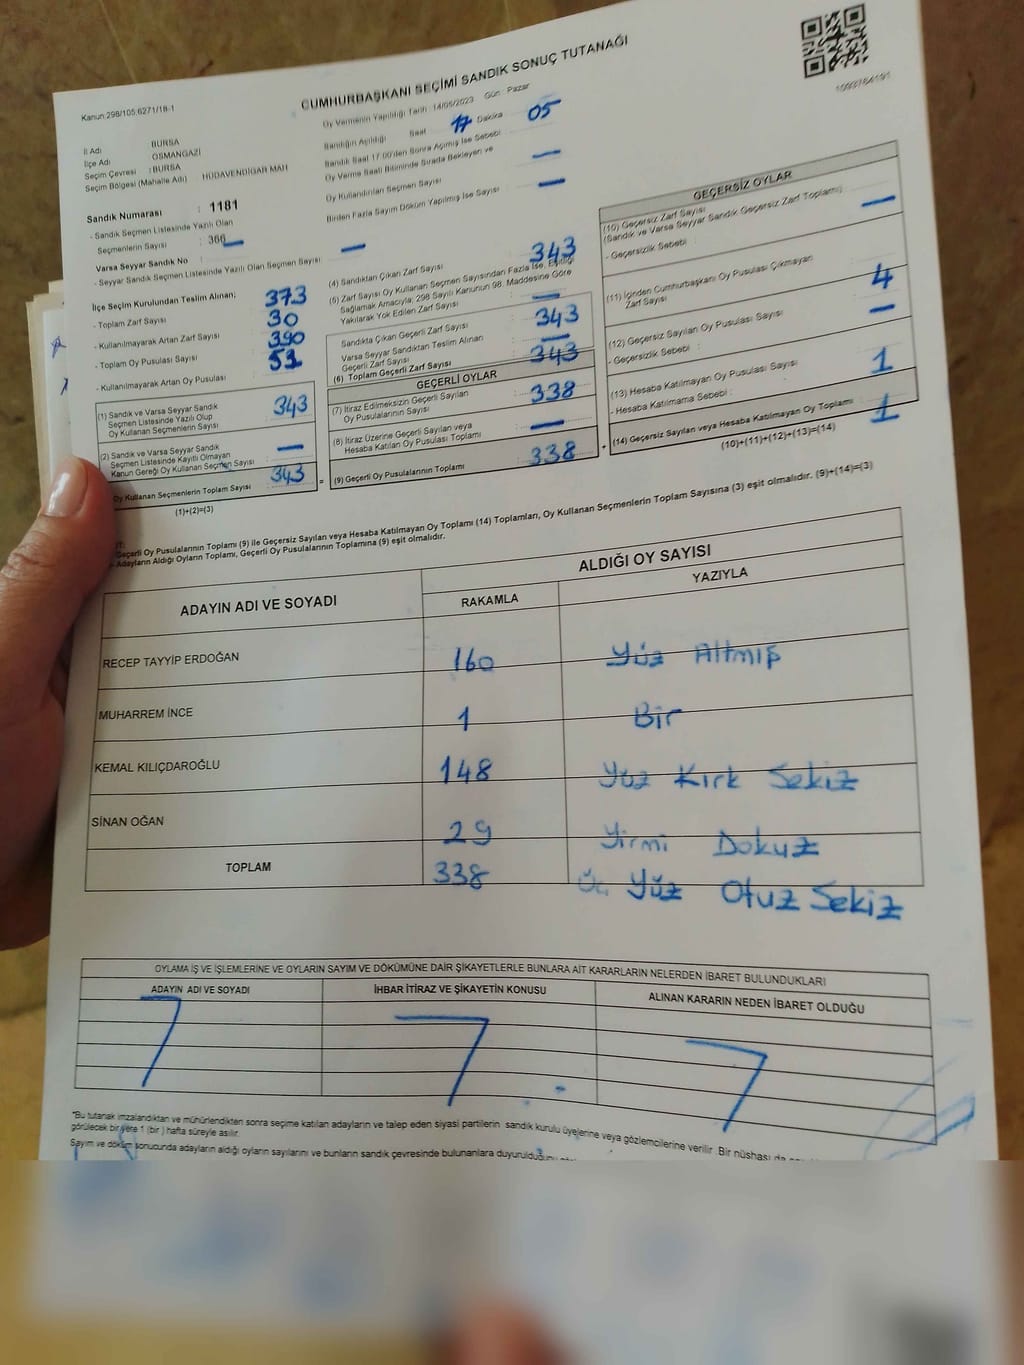 CUMHURBAŞKANI SEÇİMİ SANDIK SONUÇ TUTANAĞI
Kanun:298/105;6271/18-1
1093764191
İl Adı BURSA
İlçe Adı OSMANGAZİ
Seçim Çevresi : BURSA
Seçim Bölgesi (Mahalle Adı) HÜDAVENDİGAR MAH
Sandık Numarası : 1181
- Sandık Seçmen Listesinde Yazılı Olan
Seçmenlerin Sayısı : 366
Varsa Seyyar Sandık No :
- Seyyar Sandık Seçmen Listesinde Yazılı Olan Seçmen Sayısı : —
Oy Vermenin Yapıldığı Tarih : 14/05/2023 Gün : Pazar
Sandığın Açıldığı Saat 17 Dakika 05
Sandık Saat 17.00'den Sonra Açılmış İse Sebebi —
Oy Verme Saati Bitiminde Sırada Bekleyen ve
Oy Kullandırılan Seçmen Sayısı —
Birden Fazla Sayım Döküm Yapılmış İse Sayısı
İlçe Seçim Kurulundan Teslim Alınan;
- Toplam Zarf Sayısı : 373
- Kullanılmayarak Artan Zarf Sayısı : 30
- Toplam Oy Pusulası Sayısı : 390
- Kullanılmayarak Artan Oy Pusulası :
(1) Sandık ve Varsa Seyyar Sandık
Seçmen Listesinde Yazılı Olup
Oy Kullanan Seçmenlerin Sayısı : 343
(2) Sandık ve Varsa Seyyar Sandık
Seçmen Listesinde Kayıtlı Olmayan
Kanun Gereği Oy Kullanan Seçmen Sayısı : —
Oy Kullanan Seçmenlerin Toplam Sayısı : 343
(1)+(2)=(3)
(4) Sandıktan Çıkan Zarf Sayısı : 343
(5) Zarf Sayısı Oy Kullanan Seçmen Sayısından Fazla İse, Eşitliği
Sağlamak Amacıyla; 298 Sayılı Kanunun 98. Maddesine Göre
Yakılarak Yok Edilen Zarf Sayısı : —
Sandıkta Çıkan Geçerli Zarf Sayısı : 343
Varsa Seyyar Sandıktan Teslim Alınan
Geçerli Zarf Sayısı : —
(6) Toplam Geçerli Zarf Sayısı : 343
GEÇERLİ OYLAR
(7) İtiraz Edilmeksizin Geçerli Sayılan
Oy Pusulalarının Sayısı : 338
(8) İtiraz Üzerine Geçerli Sayılan veya
Hesaba Katılan Oy Pusulası Toplamı : —
(9) Geçerli Oy Pusulalarının Toplamı : 338
GEÇERSİZ OYLAR
(10) Geçersiz Zarf Sayısı
(Sandık ve Varsa Seyyar Sandık Geçersiz Zarf Toplamı) —
- Geçersizlik Sebebi :
(11) İçinden Cumhurbaşkanı Oy Pusulası Çıkmayan
Zarf Sayısı : 4
(12) Geçersiz Sayılan Oy Pusulası Sayısı : —
- Geçersizlik Sebebi :
(13) Hesaba Katılmayan Oy Pusulası Sayısı : 1
- Hesaba Katılmama Sebebi :
(14) Geçersiz Sayılan veya Hesaba Katılmayan Oy Toplamı : 1
(10)+(11)+(12)+(13)=(14)
Geçerli Oy Pusulalarının Toplamı (9) ile Geçersiz Sayılan veya Hesaba Katılmayan Oy Toplamı (14) Toplamları, Oy Kullanan Seçmenlerin Toplam Sayısına (3) eşit olmalıdır. (9)+(14)=(3)
- Adayların Aldığı Oyların Toplamı, Geçerli Oy Pusulalarının Toplamına (9) eşit olmalıdır.
ADAYIN ADI VE SOYADI ALDIĞI OY SAYISI
RAKAMLA YAZIYLA
RECEP TAYYİP ERDOĞAN 160 Yüz Altmış
MUHARREM İNCE 1 Bir
KEMAL KILIÇDAROĞLU 148 Yüz Kırk Sekiz
SİNAN OĞAN 29 Yirmi Dokuz
TOPLAM 338 Üç Yüz Otuz Sekiz
OYLAMA İŞ VE İŞLEMLERİNE VE OYLARIN SAYIM VE DÖKÜMÜNE DAİR ŞİKAYETLERLE BUNLARA AİT KARARLARIN NELERDEN İBARET BULUNDUKLARI
ADAYIN ADI VE SOYADI İHBAR İTİRAZ VE ŞİKAYETİN KONUSU ALINAN KARARIN NEDEN İBARET OLDUĞU
*Bu tutanak imzalandıktan ve mühürlendikten sonra seçime katılan adayların ve talep eden siyasi partilerin sandık kurulu üyelerine veya gözlemcilerine verilir. Bir nüshası da
görülecek bir yere 1 (bir) hafta süreyle asılır.
Sayım ve döküm sonucunda adayların aldığı oyların sayılarını ve bunların sandık çevresinde bulunanlara duyurulduğunu